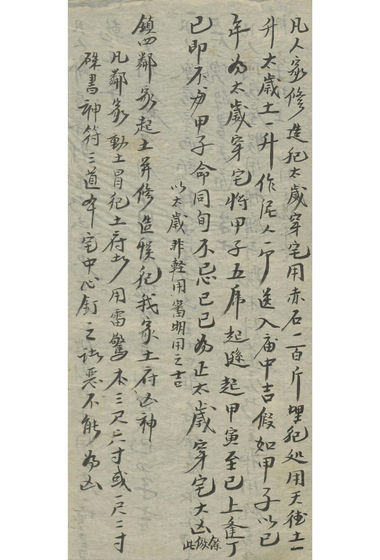 凡人家修造犯太歲穿宅用赤石一百斤埋犯処用天德土一
升太歲土一升作泥人一个送入庙中吉假如甲子以已
年为太歲穿宅将甲子五虎起遁起甲寅至已上逢丁
已即不为甲子命同旬不忌已已为正太歲穿宅大凶
餘倣此
以太歲非軽用當明用之吉
鎮四鄰家起土并修造悮犯我家土府凶神
凡鄰家動土冒犯土府用雷驚木三尺六寸或一尺二寸
硃書神符三道本宅中心釘之諸惡不能为凶